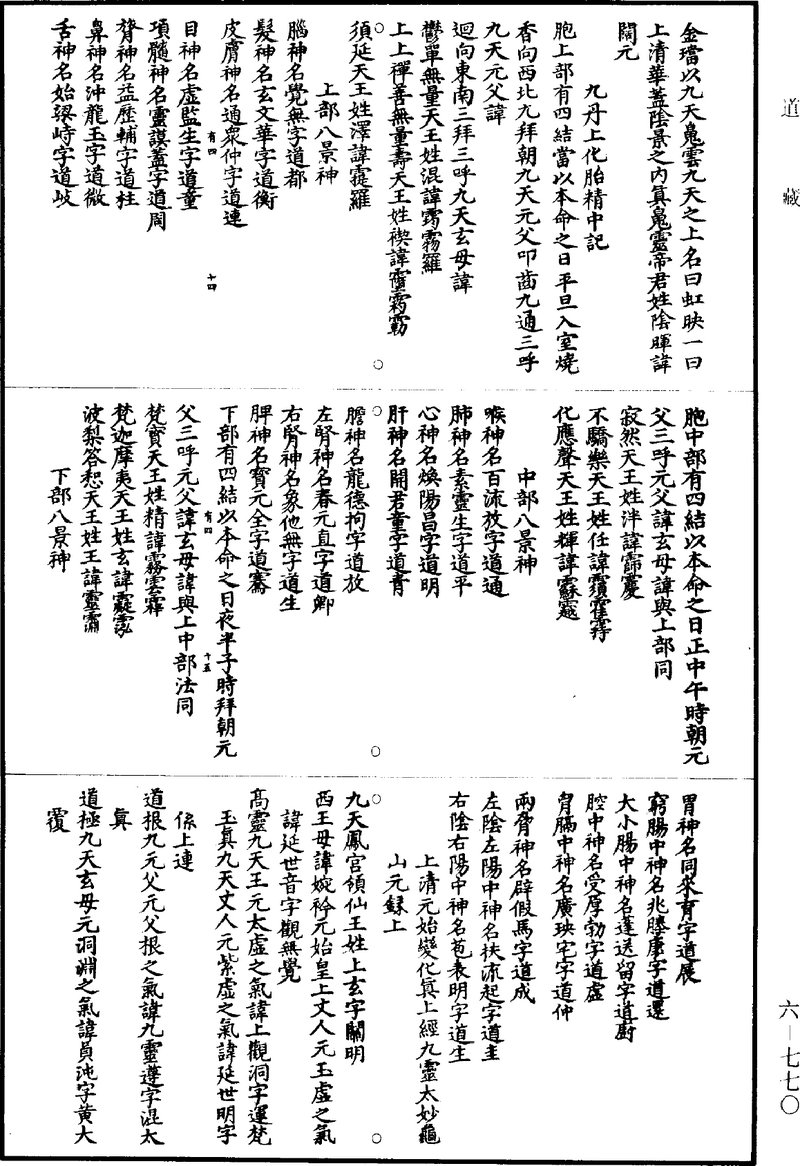 道藏
金璫以九天嵬雲九天之上名曰虹映一曰
上清華蓋陰景之內真嵬靈帝君姓陰暉諱
闊元
九丹上化胎精中記
胞上部有四結當以本命之日平旦入室燒
香向西北九拜朝九天元父叩齒九通三呼
九天元父諱
迴向東南三拜三呼九天玄母諱
鬱單無量天王姓混諱霧羅
上上禪善無量壽天王姓禊諱
須延天王姓澤諱羅
上部八景神
腦神名覺無字道都
髮神名玄文華字道衡
皮膚神名通衆仲字道連
有四
十四
目神名虛監生字道童
項髓神名靈謨蓋字道周
膂神名益歷輔字道柱
鼻神名沖龍玉字道微
舌神名始梁峙字道岐
胞中部有四結以本命之日正中午時朝元
父三呼元父諱玄母諱與上部同
寂然天王姓泮諱
不驕樂天王姓任諱
化應聲天王姓輝諱
中部八景神
喉神名百流放字道通
肺神名素靈生字道平
心神名煥陽昌字道明
肝神名開君童字道青
膽神名龍德拘字道放
左腎神名春元直字道卿
右腎神名象他無字道生
脾神名寶元全字道騫
下部有四結以本命之日夜半子時拜朝元
有四
十五
父三呼元父諱玄母諱與上中部法同
梵寶天王姓精諱霧雲霏
梵迦摩夷天王姓玄諱
波梨答惒天王姓王諱靈
下部八景神
胃神名同來育字道展
窮腸中神名兆滕康字道還
大小腸中神名蓬送留字道廚
腔中神名受厚勃字道虛
胷膈中神名廣瑛宅字道仲
兩脅神名辟假馬字道成
左陰左陽中神名扶流起字道圭
右陰右陽中神名苞表明字道生
上清元始變化真上經九靈太妙龜
山元錄上
九天鳳宮領仙王姓上玄字關明
西王母諱婉衿元始皇上丈人元玉虛之氣
諱延世音字觀無覺
高靈九天王元太虛之氣諱上觀洞字運梵
玉真九天丈人元紫虛之氣諱延世明字
係上連
道根九元父元父根之氣諱九靈遵字混太
真
道極九天玄母元洞淵之氣諱員沌字黄大
覆
六－七七〇